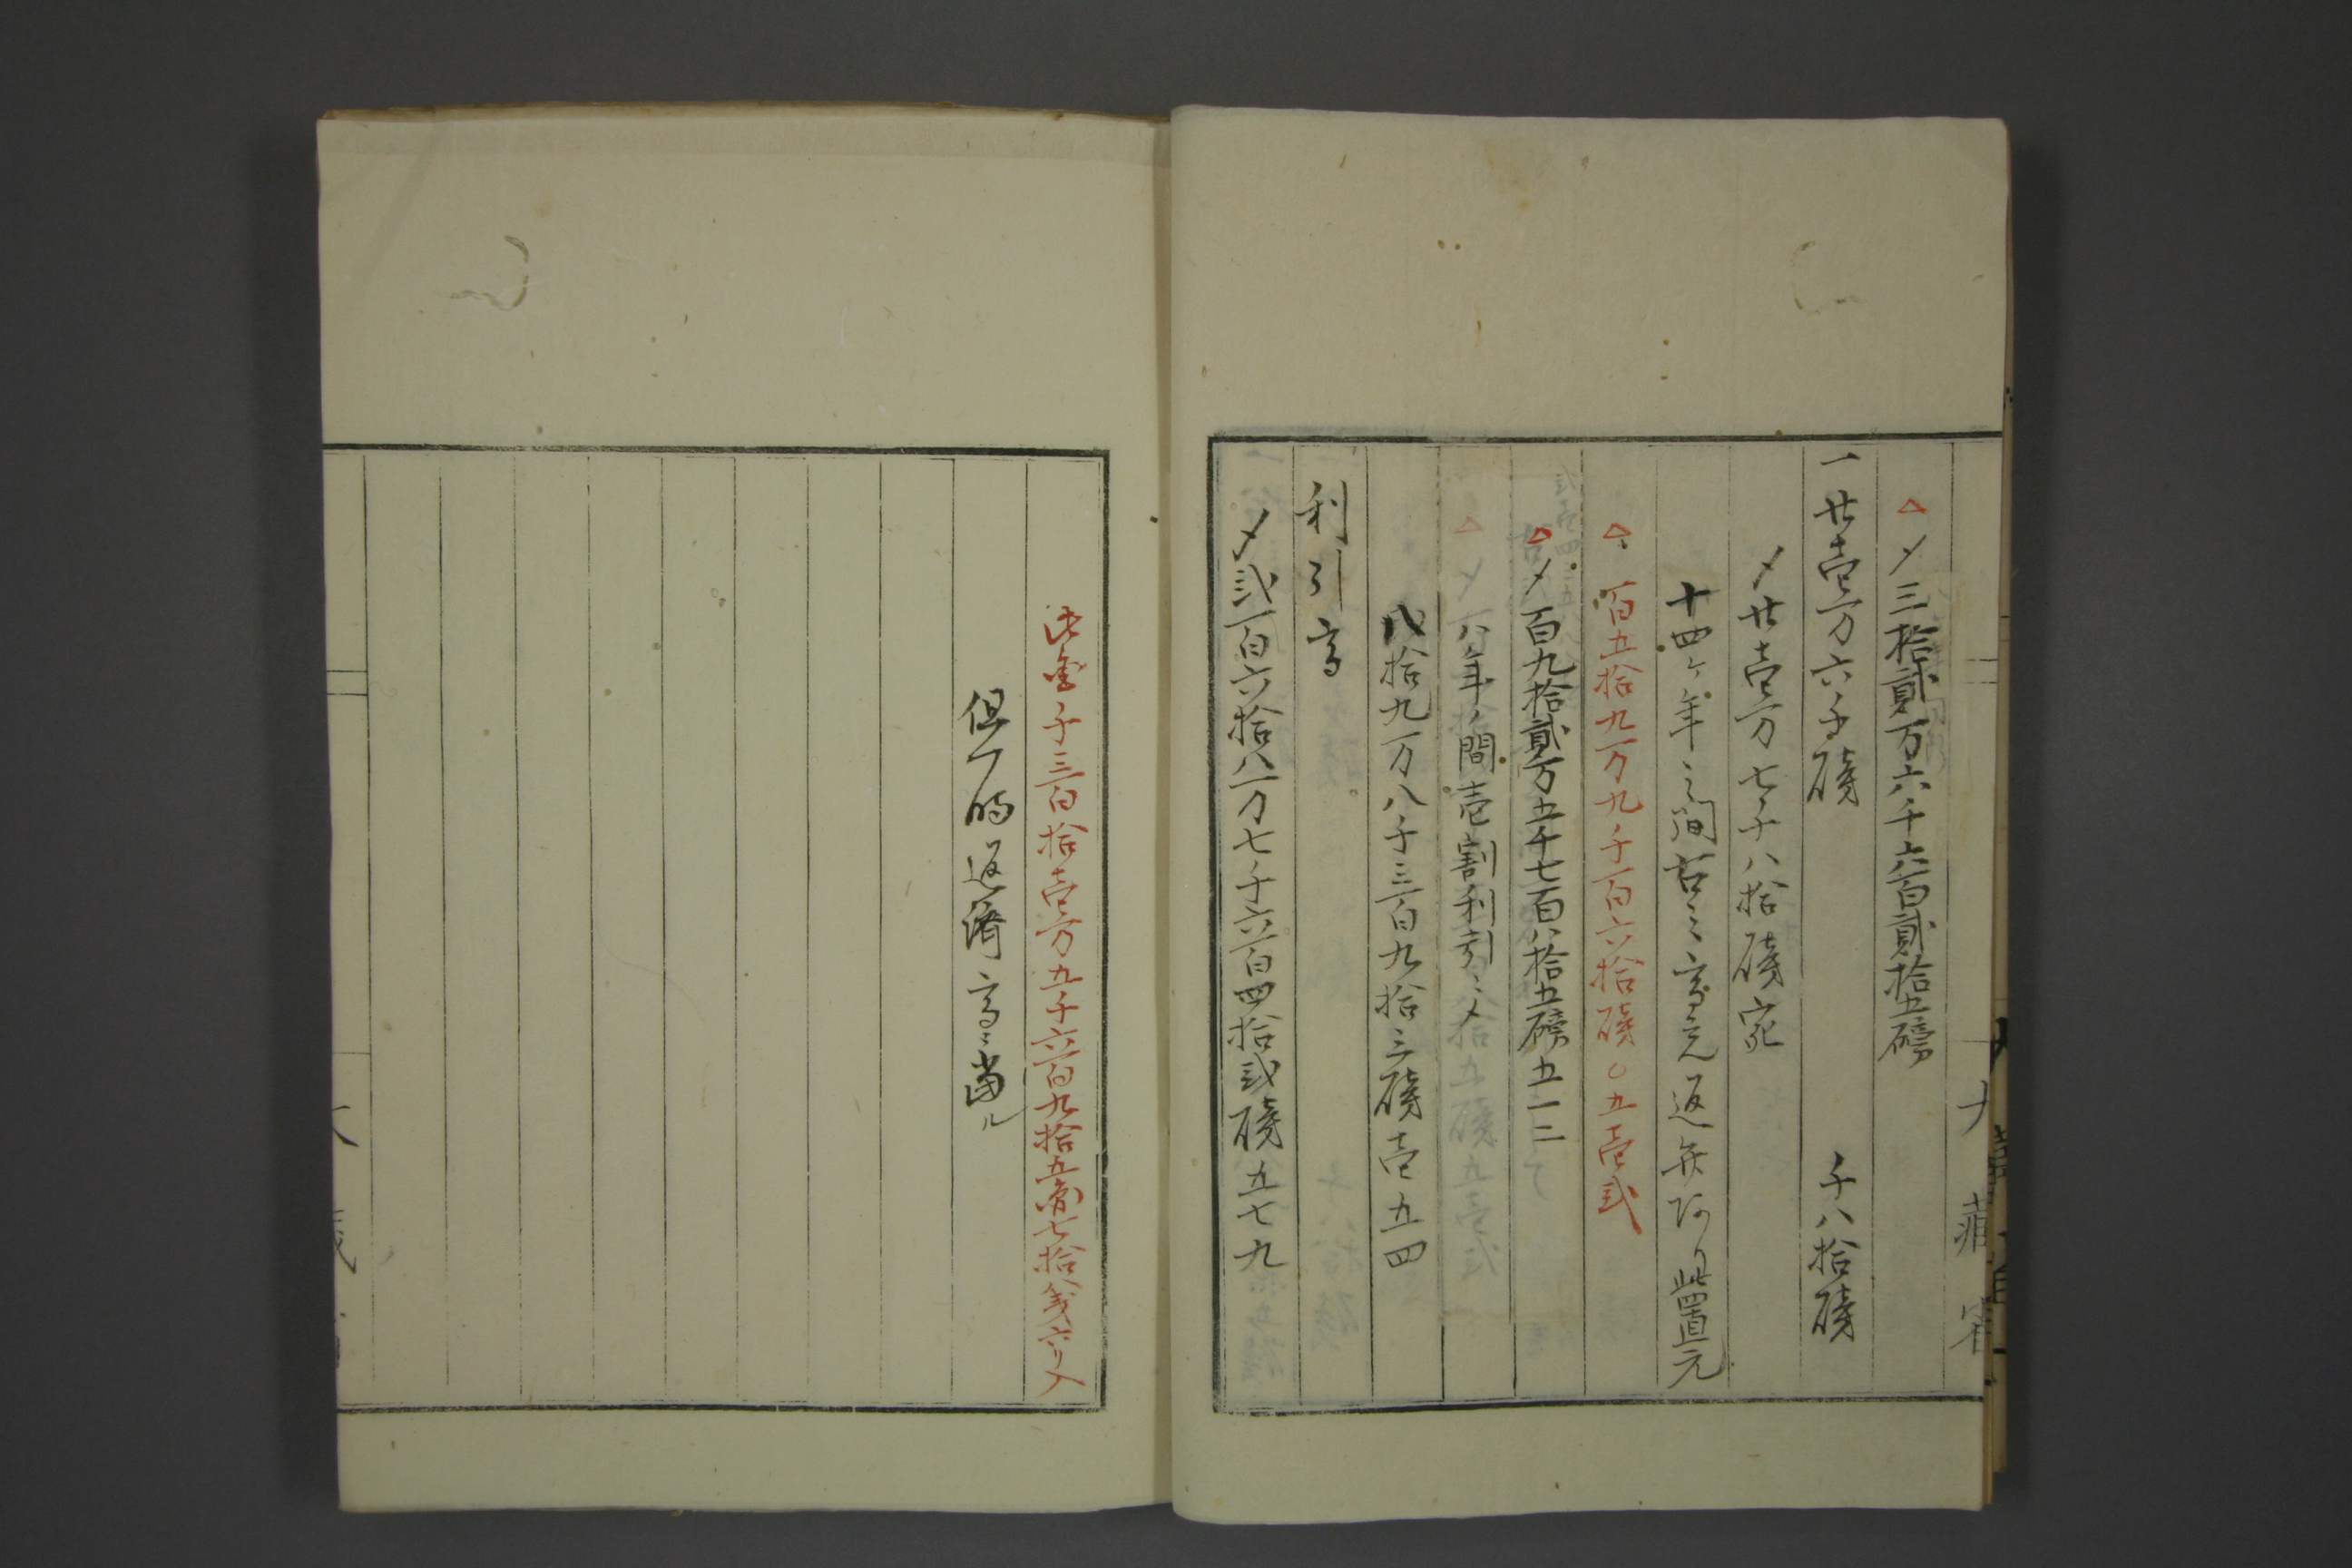 △〆三拾貳万六千六百貳拾五磅
一廿壱万六千磅 千八拾磅
〆廿壱万七千八拾磅宛
十四ヶ年之間右之高元返弁
△百五拾九万九千百六拾磅〇五壱弐
△〆百九拾貳万五千七百八拾五磅五一二
八ヶ年ノ間壱割利引ニ〆
八拾九万八千三百九拾三磅壱五四
利引高
〆弐百六拾八万七千六百四拾弐磅五七九
此金千三百拾壱万五千六百九拾五両七拾銭六リ入
但一時返済高ニ当ル
大蔵省